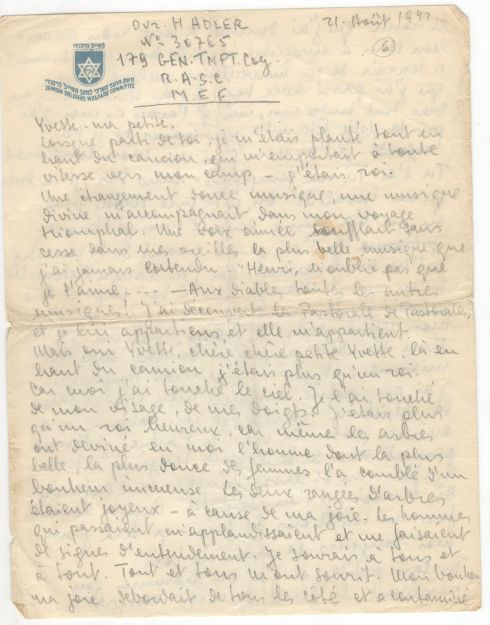 Dvr. H ADLER
21. Août 194
No 30765
(6)
179 GEN. TNPT. Coy.
R.A.S.C
M E F
JEWISH SOLDIERS WELFARE COMMITTEE
Yvette ma petite
Lorsque parti de toi, je m'étais planté tout en
haut du camion, qui m'emportait à toute
vitesse vers mon camp – j'étais roi.
Une étrangement douce musique, une musique
divine m'accompagnait dans mon voyage
triomphal. Une voix aimée soufflait sans
cesse dans mes oreilles la plus belle musique que
j'ai jamais entendu : "Henri, n'oublie pas que
je t'aime.... – Aux diable toutes les autres
musiques! J'ai découvert la Pastorale de Pastorales,
et je lui appartiens et elle m'appartient.
Mais oui Yvette, chère chère petite Yvette, là en
haut du camion j'étais plus qu'un roi.
Car moi j'ai touché le ciel. Je l'ai touché
de mon visage, de mes doigts. J'étais plus
qu'un roi heureux, car même les arbres
ont deviné en moi l'homme dont la plus
belle, la plus douce des femmes l'a comblé d'un
bonheur immense. Les deux rangées d'arbres
étaient joyeux – à cause de ma joie. Les hommes
qui passaient m'applaudissaient et me faisaient
de signes d'entendement. Je souriais à tous et
à tout. Tout et tous m'ont sourit. Mon bonheur
ma joie débordait de tous les côté et a contaminé